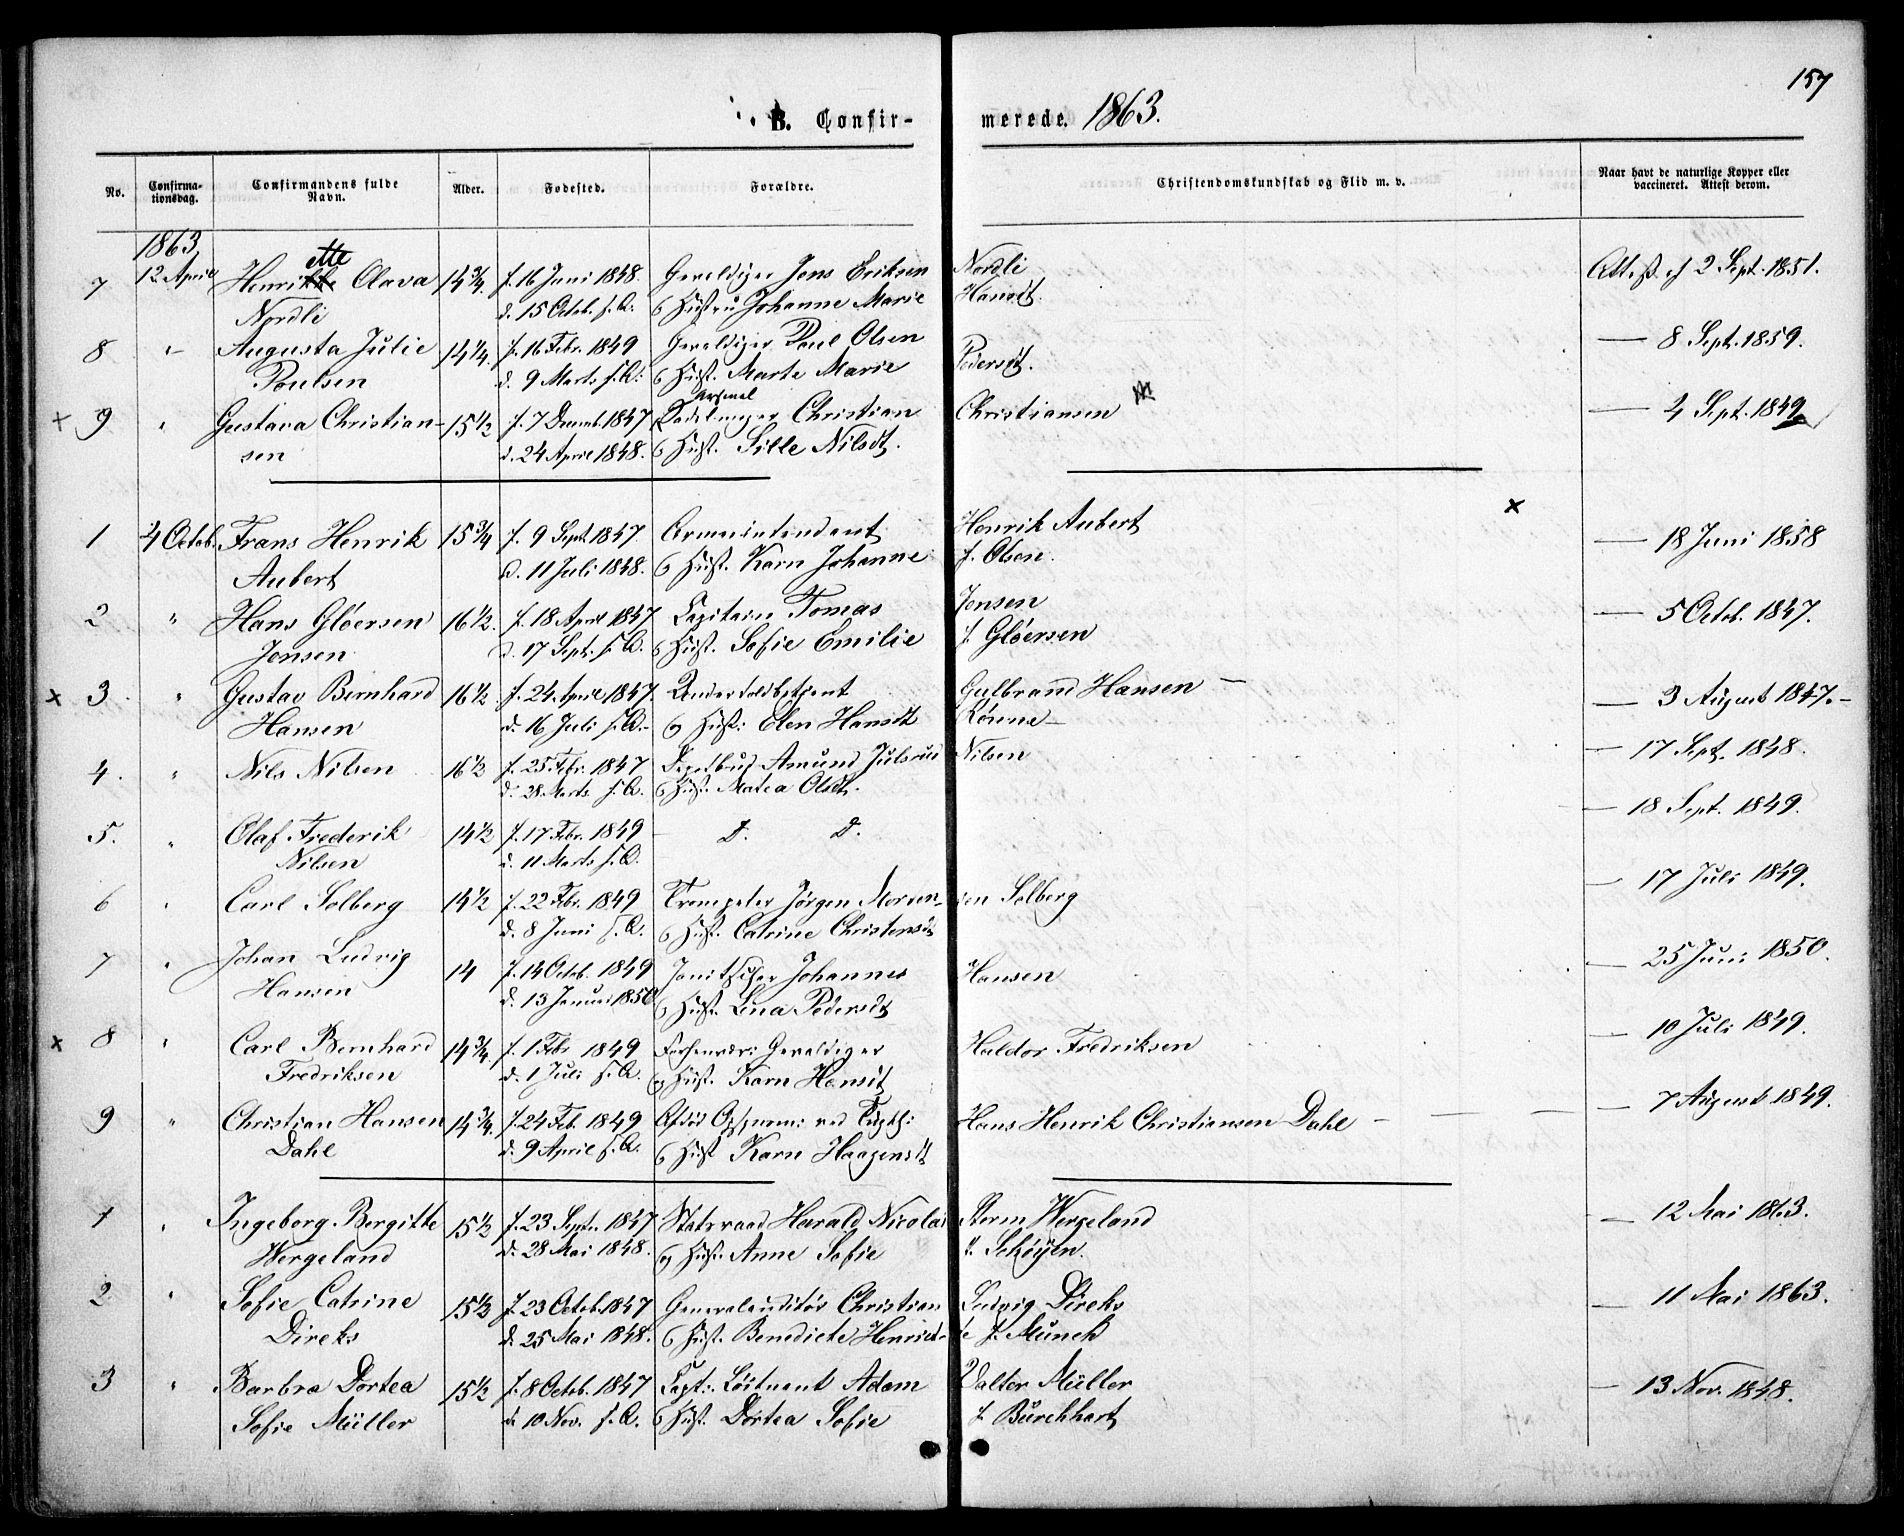 157
B. Confirmerede. 1863.
No. Confirmationsdag. Confirmandens fulde Navn. Alder. Fødested. Forældre. Christendomskundskab og Flid m. v. Naar havt de naturlige Kopper eller vaccineret. Attest derom.
1863
7 12 April Henriette Olava 14 3/4 f. 16 Juni 1848. Gevaldiger Jens Eriksen Nordli Attest af 2 Sept. 1851.
Nordli d. 15 Octob. s. A. Hustru Johanne Marie Hansdt.
8 " Augusta Julie 14 1/4 f. 16 Febr. 1849 Gevaldiger Poul Olsen — 8 Sept. 1859.
Poulsen d. 9 Marts s. A. Hust. Marte Marie Pedersdt.
Arsenal
× 9 " Gustava Christian- 15 1/2 f. 7 Decemb. 1847 Christian Christiansen — 4 Sept. 1849
sen d. 24 April 1848. Hust. Sille Nilsdt.
1 4 Octob. Frans Henrik 15 3/4 f. 9 Sept. 1847. Armeintendent Henrik Aubert × — 18 Juni 1858
Aubert d. 11 Juli 1848. Hust. Karn Johanne f. Olsen.
2 " Hans Gløersen 16 1/2 f. 18 April 1847 Capitain Tomas Jensen — 5 Octob. 1847.
Jensen d. 17 Sept. s. A. Hust. Sofie Emilie f. Gløersen
× 3 " Gustav Bernhard 16 1/2 f. 24 April 1847. Gulbrand Hansen — — 3 August 1847. –
Hansen d. 16 Juli s. A. og Hust: Elen Hansdt. Kørene –
4. " Nils Nilsen 16 1/2 f. 25 Febr. 1847 Amund Julsrud Nilsen — 17 Sept. 1848.
d. 28 Marts s. A. Hust. Matea Olsdt.
5. " Olaf Frederik 14 1/2 f. 17 Febr. 1849 D. D. — 18 Sept. 1849.
Nilsen d. 11 Marts s. A.
6 " Carl Solberg 14 1/2 f. 22 Febr. 1849 Trompeter Jørgen Morten- sen Solberg — 17 Juli 1849.
d. 8 Juni s. A. Hust. Catrine Christensdt
7 " Johan Ludvig 14 f. 14 Octob. 1849 Janitschar Johannes Hansen — 25 Juni 1850.
Hansen d. 13 Januar 1850 Hust. Lena Pedersdt
× 8 " Carl Bernhard 14 3/4 f. 1 Febr. 1849 Forhenvær: Gevaldiger Haldor Fredriksen — 10 Juli 1849.
Fredriksen d. 1 Juli s. A. og Hust. Karn Hansdt
9 " Christian Hansen 14 3/4 f. 24 Feb. 1849 Afdød Opsynsm: ved Tugth: Hans Henrik Christiansen Dahl — — 7 August 1849.
Dahl d. 9 April s. A. Hust Karn Haagensdt
1 " Ingeborg Bergitte 15 1/2 f. 23 Sept. 1847 Statsraad Harald Nicolai Storm Wergeland — 12 Mai 1863.
Wergeland d. 28 Mai 1848. og Hust. Anne Sofie f. Schøyen.
2 " Sofie Catrine 15 1/2 f. 23 Octob. 1847 Generalauditør Christian Ludvig Direks — 11 Mai 1863.
Direks d. 25 Mai 1848. Hust. Benedicte Henriet- te f. Munch
3 " Barbra Dortea 15 1/2 f. 8 Octob. 1847 Capt: Løitnant Adam Valter Müller — 13 Nov. 1848.
Sofie Müller d. 10 Nov. s. A. Hust. Dortea Sofie f. Burchhart